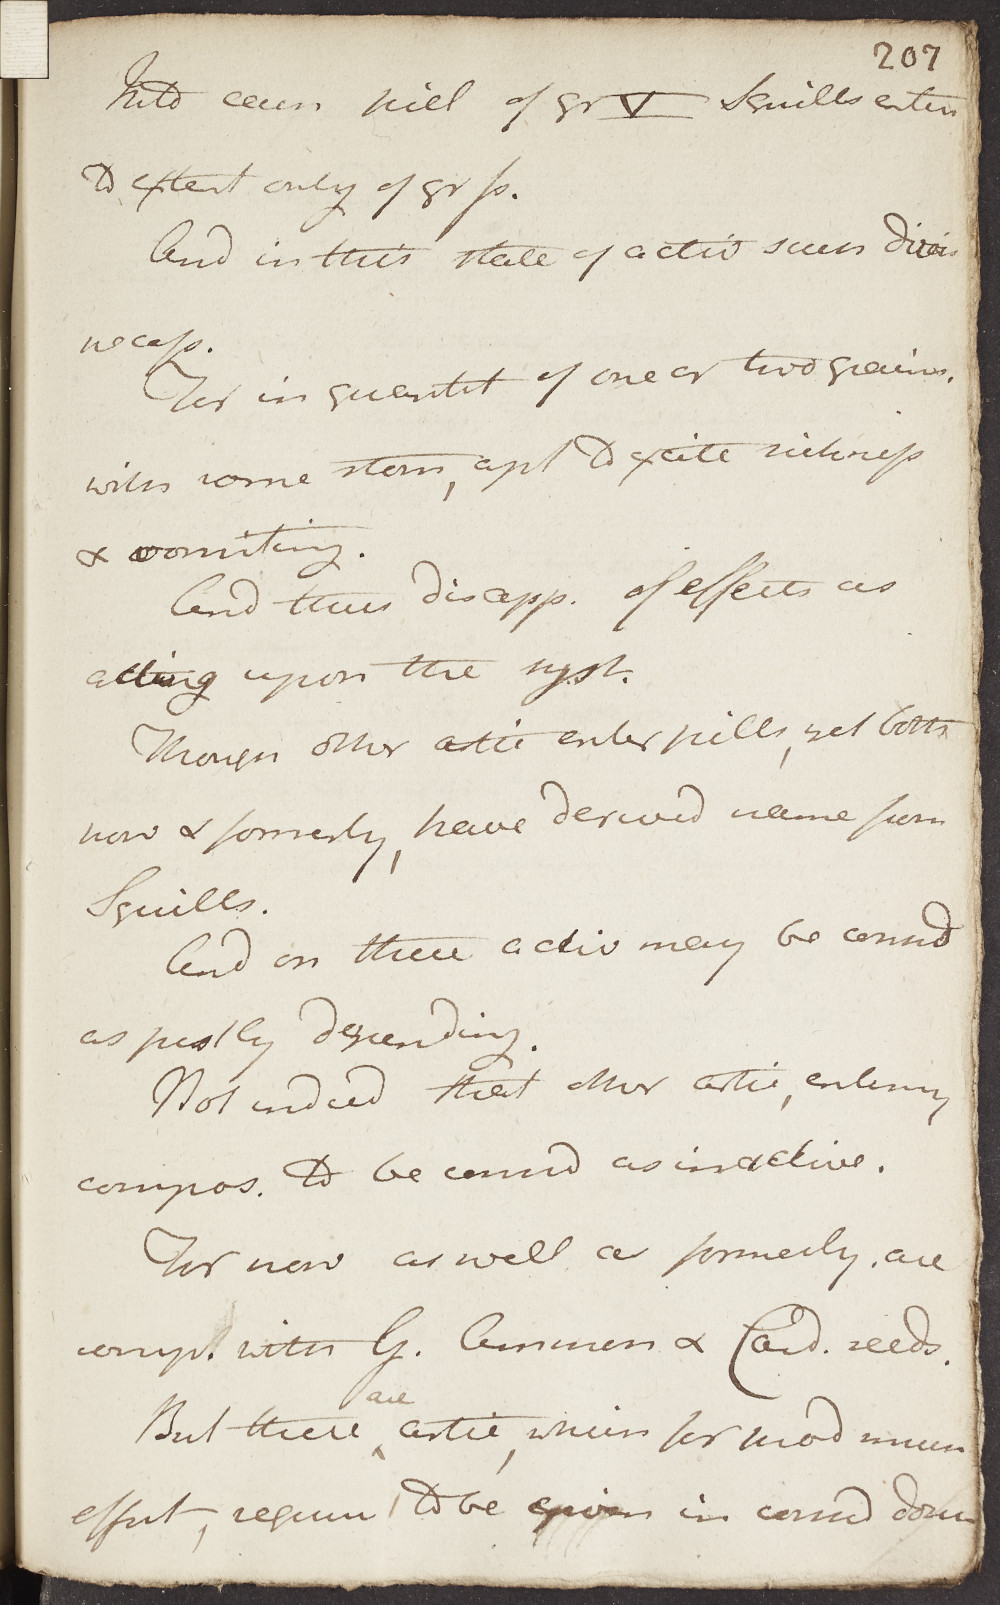 207
Into each pill of gr V Squills enters
to extent only of gr ſs.
And in this state of activ such divis
neceſs.
For in quantit of one or two grains.
with some stom, apt to excite sickneſs
& vomiting.
And thus disapp. of effects as
acting upon the syst.
Though other artic enter pills, yet both
now & formerly, have derived name from
Squills.
And on these activ may be consid
as justly depending.
Not indeed that other artic, entering
compos. to be consid as inactive.
For now as well as formerly, are
comp. with G. Ammon & Card. seeds.
are
But there artic, which for prod much
effect, require to be given in consid doses